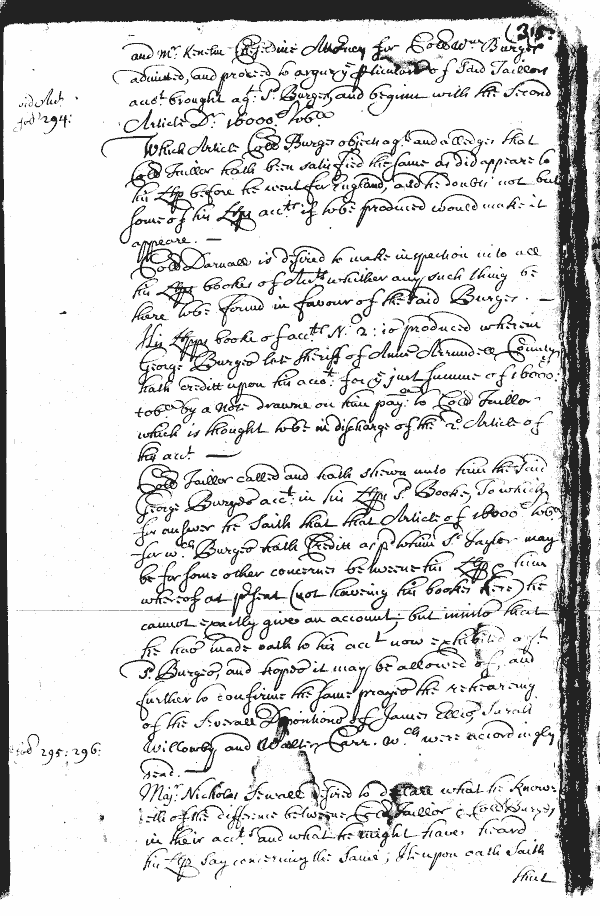 (315:
and Mr. Kenelm Cheseldine Attorney for Collo Wm Burges
admitted, and proceed to argue ye pticulars of said Taillors
acct brought agt sd. Burges, and beginn with the second
Article Dr. 16000l tobco
vid Ant.
fol. 294:
Which Article Collo Burges objects agt and alledges that
Collo Taillor hath been satisfied the same as did appeare to
his Lspp before he went for England, and he doubts not but
some of his Lspps accts if to be produced would make it
appeare. —
Collo Darnall is desired to make inspection into all
his Lspps bookes of Accts whither any such thing be
there to be found in favour of the said Burges. —
His Lspps booke of acct No. 2: is produced wherein
George Burges late sheriff of Anne Arrundell County
hath creditt upon his acct for ye just summe of 16000l
tobco by a Note drawne on him payable to Collo Taillor
which is thought to be in discharge of the 2d Article of
his acct —
Collo Taillor called and hath shewn unto him the said
George Burges acct in his Lspps sd Booke, To which
for answer he saith that that Article of 16000l tobco
for wch Burges hath Creditt as pd whim sd Taylor may
be for some other concernes betweene his Lspp & him
whereof at psent (not haveing his bookes here) he
cannot exactly give an account; but insists that
he has made oath to his acct now exhibited agst
sd. Burges, and hopes it may be allowed of, and
further to confirme the same prayes the rehearing
of the severall Depositions of James Ellis, Sarah
Willowby and Walter Carr. wch were accordingly
read. —
fol. 295: 296:
Majr Nicholas Sewall desired to declare what he know-
eth of the difference betweene Collo Taillor & Collo Burges
in their accts and what he might have heard
his Lspp say concerning the same; He upon oath saith
that